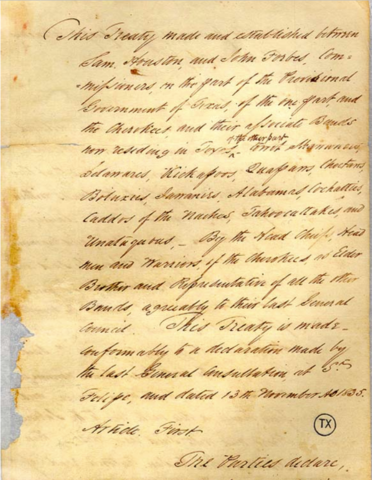 This Treaty made and established between
Sam. Houston, and John Forbes, Com-
missioners, on the part of the Provisional
Government of Texas, of the one part, and
the Cherokees, and their associate Bands
now residing in Texas, of the other part,
Delawares, Kickapoos, Quapaws, Choctaws,
Boluxies, Iawanies, Alabamas, Cochatties,
Caddos of the Naches, Tahoocuttakes, and
Unataquous,— By the Head Chiefs, Head
men and Warriors, of the Cherokees, as Elder
Brother and Representative of all the other
Bands, agreeably to their last General
Council. This Treaty is made
conformably to a declaration made by
the last General Consultation, at St.
Felipe, and dated 13th November AD 1835.
Article First
The Parties declare,
TX